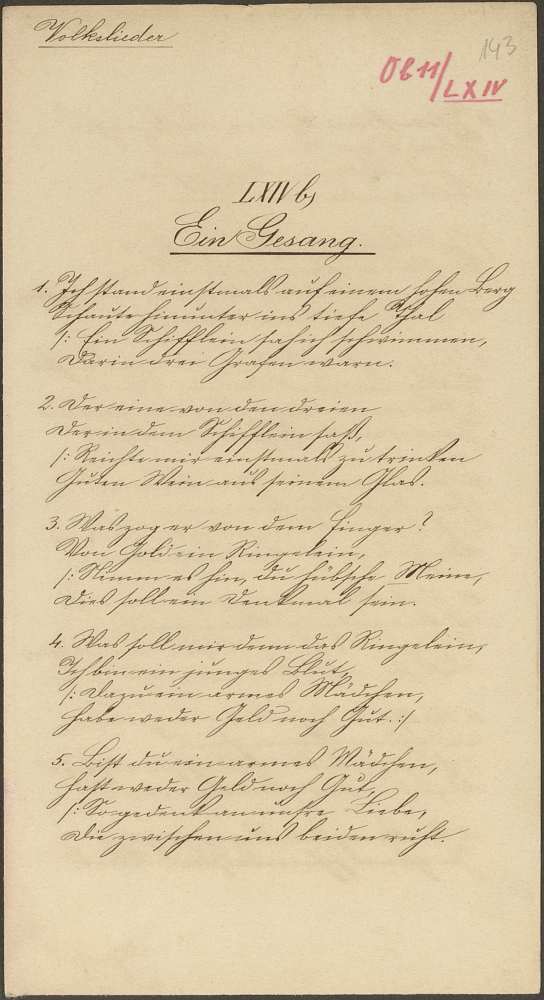 Volkslieder
143
Ob 11/LXIV
LXIV b,
Ein Gesang.
1. Ich stand einstmals auf einem hohen Berg
Schaute hinunter ins tiefe Thal
/: Ein Schifflein sah ich schwimmen,
Darin drei Grafen warn.
2. Der eine von den dreien
Der in dem Schifflein saß,
/: Reichte mir einstmals zu trinken
Guten Wein aus seinem Glas.
3. Was zog er von dem Finger?
Von Gold ein Ringelein,
/: Nimm es hin, du hübsche Meine,
Dies soll ein Denkmal sein.
4. Was soll mir denn das Ringelein,
Ich bin ein junges Blut
/: Dazu ein armes Mädchen,
Habe weder Geld noch Gut. :/
5. Bist du ein armes Mädchen,
Hast weder Geld noch Gut,
/: So gedenk an unsre Liebe,
Die zwischen uns beiden ruht.